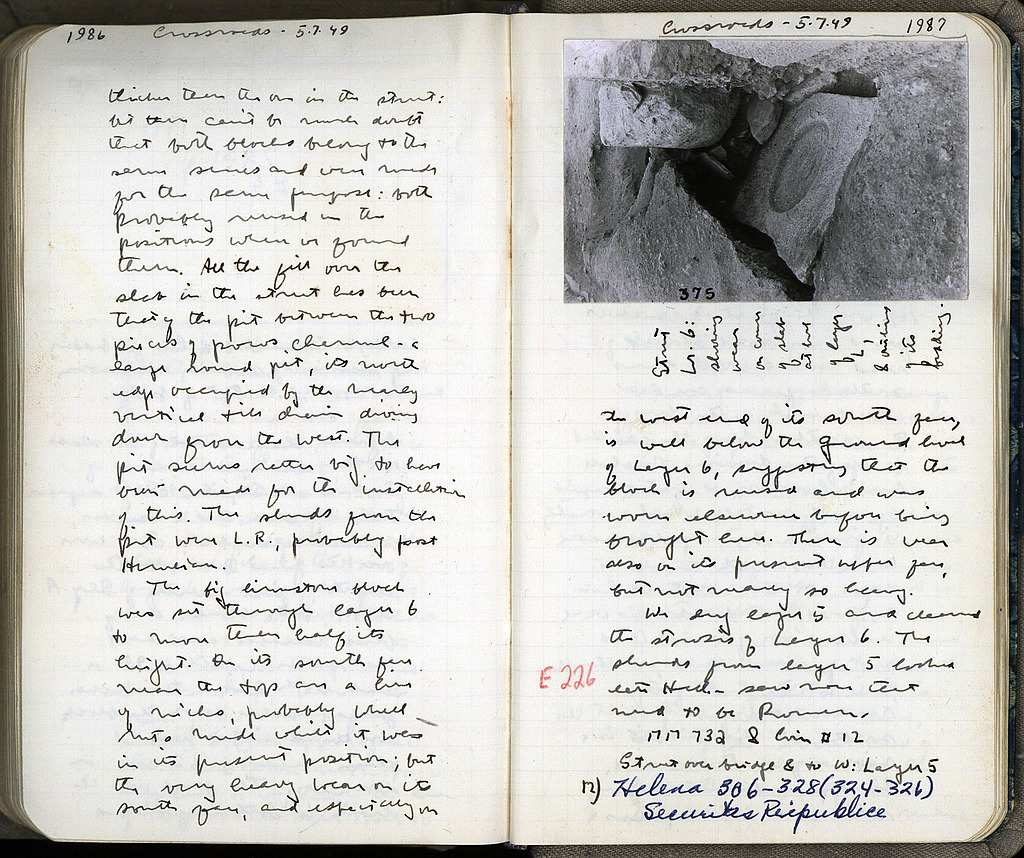 1986 Crossroads - 5.7.49
thicker than the one in the street:
but there can't be much doubt
that both blocks belong to the
same series and were made
for the same purpose: both
probably reused in the
positions where we found
them. All the fill over the
slab in the street has been
that of the pit between the two
pieces of poros channel - a
large round pit, its north
edge occupied by the nearly
vertical tile drain diving
down from the west. The
pit seems rather big to have
been made for the installation
of this. The sherds from the
pit were L.R., probably post
Herulian.
The big limestone block
was set through layer 6
to more than half its
height. On its south face
near the top are a line
of nicks, probably wheel
cuts made while it was
in its present position; but
the very heavy wear on its
south face, and especially on
Crossroads - 5.7.49 1987
375
Street
Lvl. 6:
showing
wear
on corner
of slab
at level
of layer
6,
& outline
of its
bedding.
the west end of its south face,
is well below the ground level
of Layer 6, suggesting that the
block is reused and was
worn elsewhere before being
brought here. There is wear
also on its present upper face,
but not nearly so heavy.
We dug layer 5 and cleaned
the strosis of Layer 6. The
sherds from layer 5 looked
E 226
late Hell. - saw none that
need to be Roman.
ΠΠ 732 & Coin # 12
Street over bridge & to W: Layer 5
12) Helena 306-328 (324-326)
Securitas Reipublice